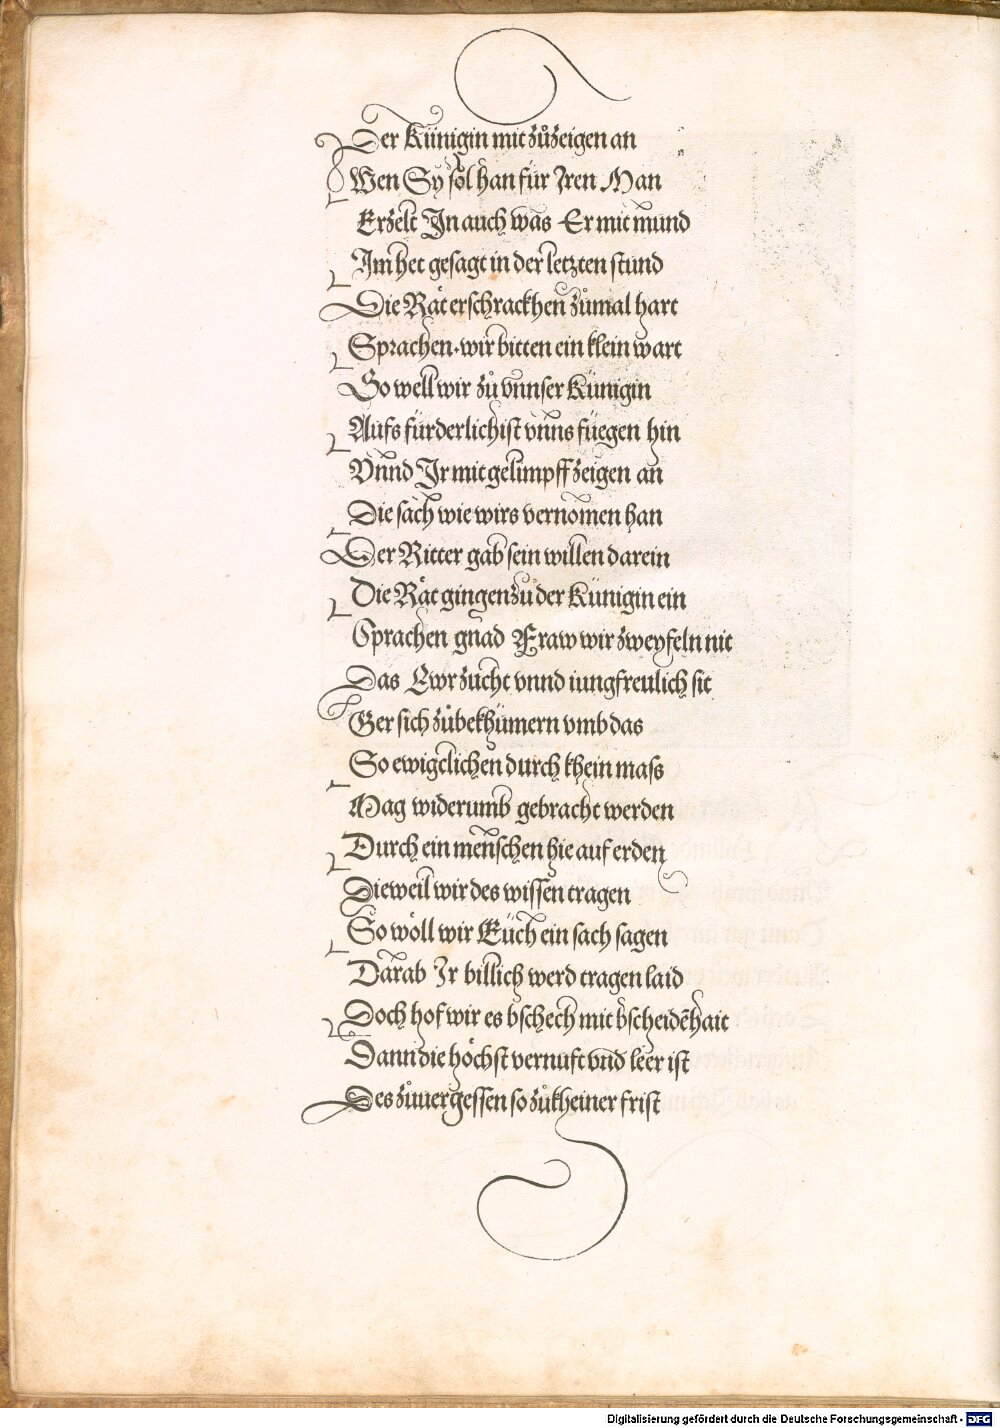 Der Künigin mit zůzeigen an
Wen Sy sol han für Iren Man
Erzelt In auch was Er mit mund
Im het gesagt in der letzten stund
Die Rät erschrackhen zůmal hart
Sprachen. wir bitten ein klein wart
So well wir zů vnnser Künigin
Aufs fürderlichist vnns füegen hin
Vnnd Ir mit gelimpff zeigen an
Die sach wie wirs vernomen han
Der Ritter gab sein willen darein
Die Rät gingen zů der Künigin ein
Sprachen gnad Fraw wir zweyfeln nit
Das Ewr zucht vnnd iungfreulich sit
Ger sich zůbekhümern vmb das
So ewigclichen durch khein mass
Mag widerumb gebracht werden
Durch ein menschen hie auf erden
Dieweil wir des wissen tragen
So wöll wir Eüch ein sach sagen
Darab Ir billich werd tragen laid
Doch hof wir es bschech mit bscheidēhait
Dann die höchst vernuft vnd leer ist
Des zůuergessen so zůkheiner frist
Digitalisierung gefördert durch die Deutsche Forschungsgemeinschaft - DFG